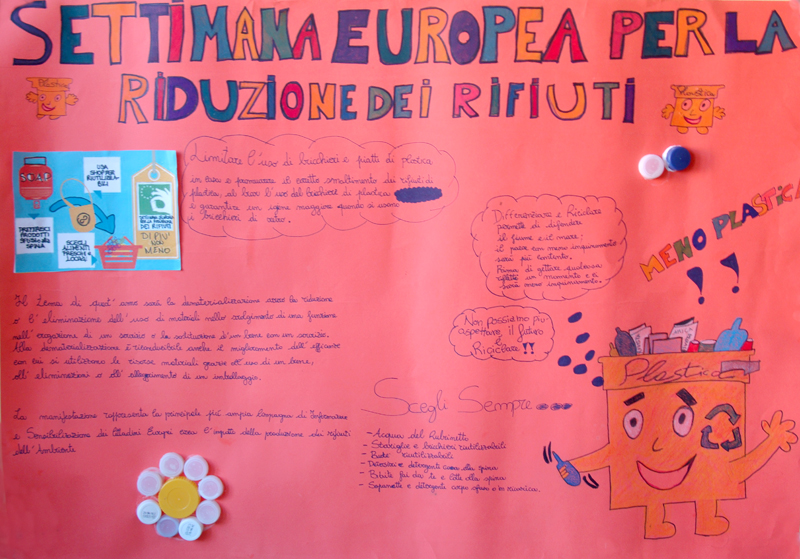 SETTIMANA EUROPEA PER LA
RIDUZIONE DEI RIFIUTI
Plastica
Plastica
Limitare l'uso di bicchieri e piatti di plastica
in casa e promuovere il corretto smaltimento dei rifiuti di
plastica, al bar l'uso del bicchiere di plastica
è garantire un igene maggiore quando si usano
i bicchieri di vetro.
USA
SHOPPER
RIUTILIZZA-
BILI
PREFERISCI
PRODOTTI
SFUSI O ALLA
SPINA
SCEGLI
ALIMENTI
FRESCHI E
LOCALI
SETTIMANA EUROPEA
PER LA RIDUZIONE
DEI RIFIUTI
DI PIÙ
CON
MENO
Differenziare e Riciclare
permette di difendere
il fiume e il mare:
il pesce con meno inquinamento
sarà più contento.
Prima di gettare qualcosa
rifletti un momento e ci
sarà meno inquinamento.
MENO PLASTICA
!!
Non possiamo più
aspettare, il futuro
è
Riciclare!!
Il tema di quest'anno sarà la dematerializzazione ossia la riduzione
o l'eliminazione dell'uso di materiali nello svolgimento di una funzione
nell'erogazione di un servizio o la sostituzione d'un bene con un servizio.
Alla dematerializzazione è riconducibile anche il miglioramento dell'efficienza
con cui si utilizzano le risorse materiali grazie all'uso di un bene,
all'eliminazione o all'alleggerimento di un imballaggio.
La manifestazione rappresenta la principale più ampia Campagna di Informazione
e Sensibilizzazione dei Cittadini Europei circa l'impatto della produzione dei rifiuti
dell'Ambiente
Scegli Sempre
- Acqua del Rubinetto
- Stoviglie e bicchieri riutilizzabili
- Buste riutilizzabili
- Detersivi e detergenti casa alla spina
- Bibite fai da te e latte alla spina
- Saponette e detergenti corpo sfusi o in ricarica.
Plastica